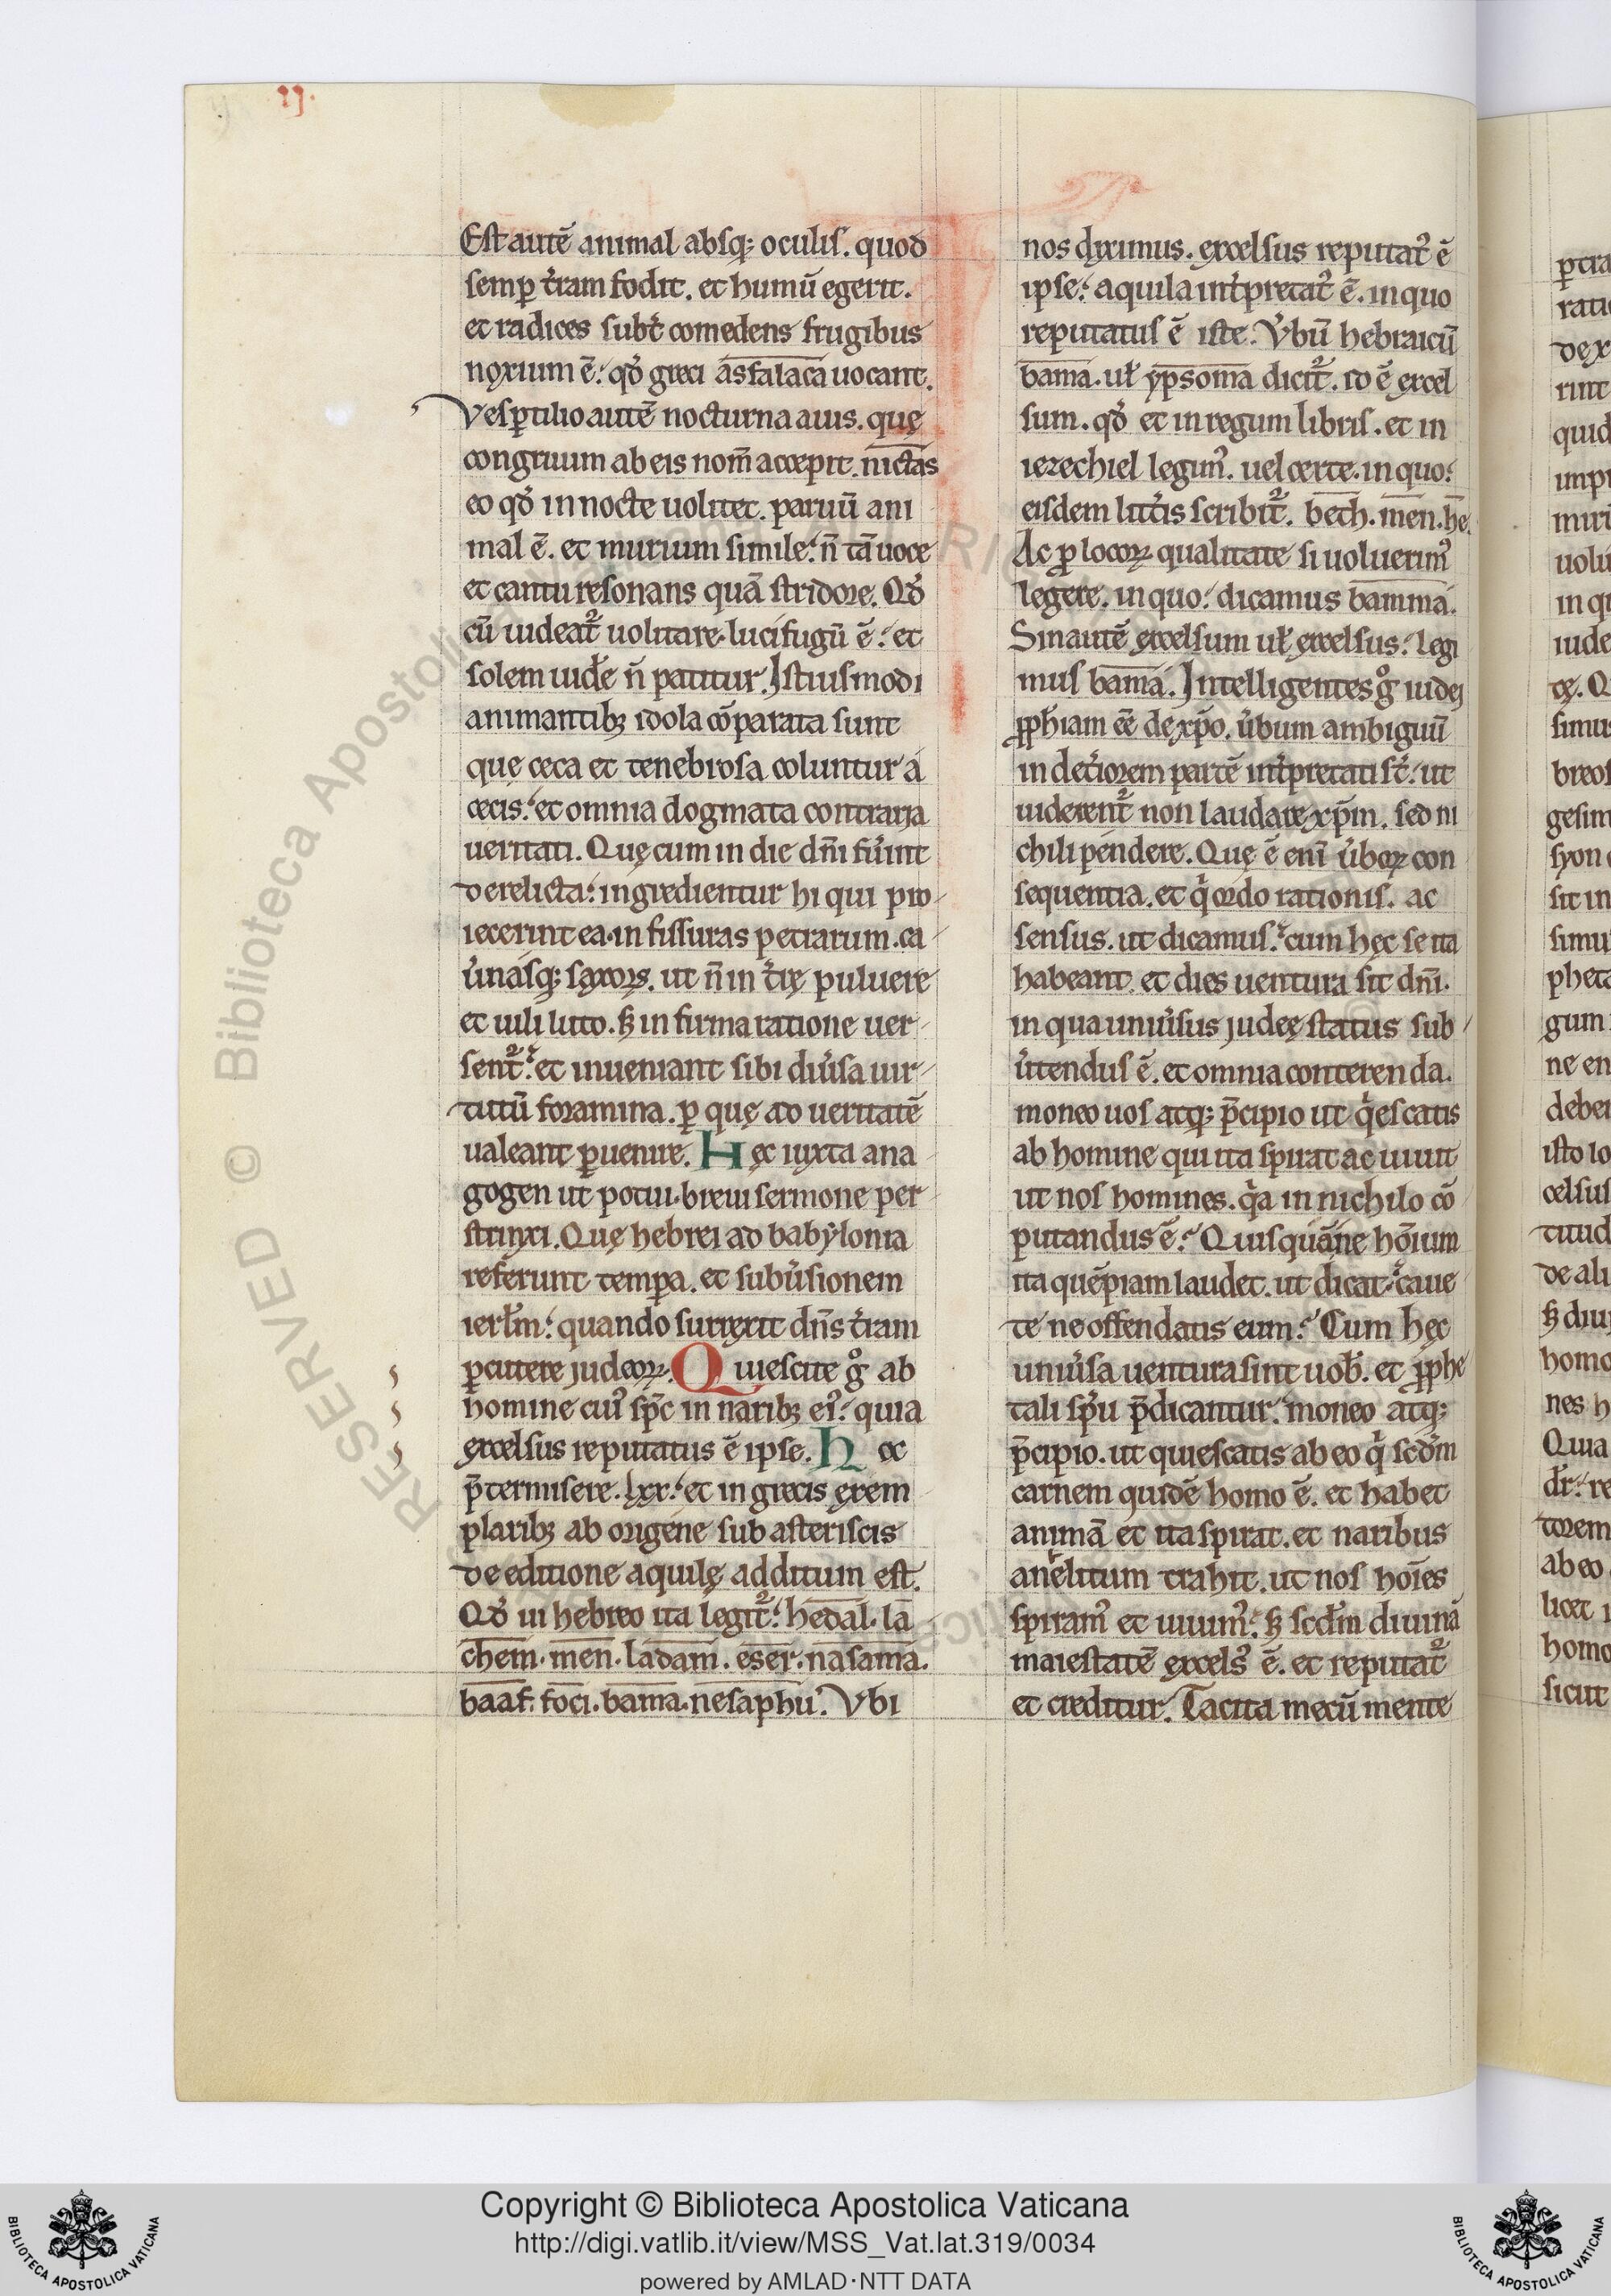 Est autē animal absq; oculis. quod
semp t̓ram fodit. et humū egerit.
et radices subt̓ comedens frugibus
noxium ē. qđ greci asfalaca uocant.
Vesp̱tilio autē nocturna auis. quę
congruum ab eis nom̄ accepit. nictas
eo qđ in nocte uolitet. paruū ani
mal ē. et murium simile. n̄ tā uoce
et cantu resonans quā stridore. Qđ
cū uideat᷑ uolitare. lucifugū ē. et
solem uidẽ n̄ patitur. Istiusmodi
animantibꝫ idola cō̄parata sunt
quę ceca et tenebrosa coluntur a
cecis. et omnia dogmata contraria
ueritati. Quę cum in die dn̄i fu̓int
derelicta. ingredientur hi qui pro
iecerint ea. in fissuras petrarum. ca
u̓nasq; saxorꝫ. ut n̄ in t̓rę puluere
et uili luto. sꝫ in firma ratione uer
sent᷑. et inueniant sibi diu̓sa uir
tutū foramina. p̱ quę ad ueritatē
ualeant p̱uenire. Hęc iuxta ana
gogen ut potui. breui sermone per
strinxi. Quę hebrei ad babylonia
referunt tempa. et subu̓sionem
ierłm. quando surrexit dn̄s t̓ram
p̱cutere iudeoꝝ. Quiescite g̊ ab
homine cui᷒ sp̄c in naribꝫ ei᷒. quia
excelsus reputatus ē ipse. Hoc
p̄termisere. lxx. et in grecis exem
plaribꝫ ab origene sub asteriscis
de editione aquilę additum est.
Qđ in hebreo ita legit᷑. hedal. la
chem. men. ladam. eser. nasama.
baaf. foci. bama. nesaphu. Vbi
nos diximus. excelsus reputat᷒ ē
ipse. aquila int̓pretat᷒ ē. in quo
reputatus ē iste. V̓bū hebraicū
bama. uł ypsoma dicit᷑. id ē excel
sum. qđ et in regum libris. et in
iezechiel legim᷒. uel certe. in quo.
eisdem litt̓is scribit᷑. beth. men. he.
Ac p̱ locoꝝ qualitate si uoluerim᷒
legere. in quo. dicamus bamma.
Sin autē excelsum uł excelsus. legi
mus bama. Intelligentes g̊ iudei
ꝓph̄iam eē̄ de xp̄o. u̓bum ambiguū
in det̓iorem partē int̓pretati st̄. ut
uiderent᷑ non laudare xp̄m. sed ni
chili pendere. Quę ē enī u̓boꝝ con
sequentia. et q̓ ordo rationis. ac
sensus. ut dicamus. cum hęc se ita
habeant. et dies uentura sit dn̄i.
in qua uniu̓sus iudeę status sub
u̓tendus ē. et omnia conterenda.
moneo uos atq; p̄cipio ut q̓escatis
ab homine qui ita spirat ac uiuit
ut nos homines. q̓a in nichilo cō
putandus ē. Quisquāne hōium
ita quēpiam laudet. ut dicat. caue
te ne offendatis eum. Cum hęc
uniu̓sa uentura sint uob̄. et ꝓphe
tali sp̄u p̄dicantur. moneo atq;
p̄cipio. ut quiescatis ab eo q̓ scd̄m
carnem quidē homo ē. et habet
animā et ita spirat. et naribus
anelitum trahit. ut nos hoīes
spiram᷒ et uiuim᷒. sꝫ scd̄m diuinā
maiestatē excels᷒ ē. et reputat᷑
et creditur. Tacita mecū mente
Copyright © Biblioteca Apostolica Vaticana
http://digi.vatlib.it/view/MSS_Vat.lat.319/0034
powered by AMLAD·NTT DATA